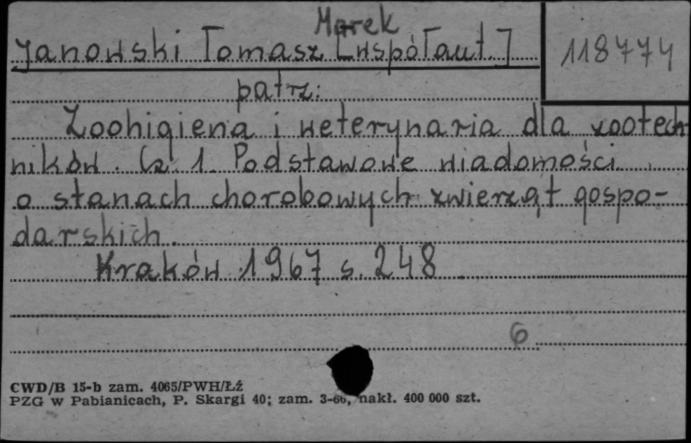 Marek
Janowski Tomasz [współaut.]
118774
patrz:
Zoohigiena i weterynaria dla zootech
ników. Cz. 1. Podstawowe wiadomości
o stanach chorobowych zwierząt gospo-
darskich.
Kraków 1967 s. 248
6
CWD/B 15-b zam. 4065/PWH/ŁŹ
PZG w Pabianicach, P. Skargi 40; zam. 3-66, nakł. 400 000 szt.